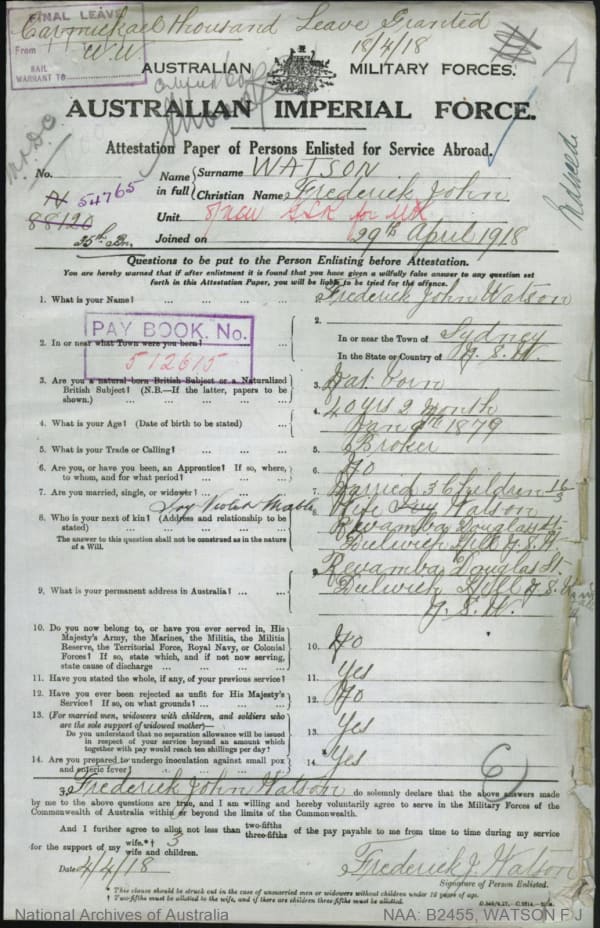 FINAL LEAVE
From
W.W.
RAIL
WARRANT TO
thousand Leave Granted
18/4/18
A
AUSTRALIAN MILITARY FORCES.
AUSTRALIAN IMPERIAL FORCE.
Attestation Paper of Persons Enlisted for Service Abroad.
No.
N 54765
88120
Name in full
Surname WATSON
Christian Name Frederick John
Unit
Joined on 29th April 1918
Questions to be put to the Person Enlisting before Attestation.
You are hereby warned that if after enlistment it is found that you have given a wilfully false answer to any question set
forth in this Attestation Paper, you will be liable to be tried for the offence.
1. What is your Name? Frederick John Watson
PAY BOOK. No.
512615
2. In or near what Town were you born?
2.
In or near the Town of Sydney
In the State or Country of N.S.W.
3. Are you a natural born British Subject or a Naturalized
British Subject? (N.B.—If the latter, papers to be
shown.)
3. Nat. born
4. What is your Age? (Date of birth to be stated)
4. 40 yrs 2 month
Jan 1879
5. What is your Trade or Calling? 5. Broker
6. Are you, or have you been, an Apprentice? If so, where,
to whom, and for what period?
6. No
7. Are you married, single, or widower? 7. Married 3 Children
8. Who is your next of kin? (Address and relationship to be
stated)
The answer to this question shall not be construed as in the nature
of a Will.
Ivy Violet Mable
Wife Ivy Watson
Revamba Douglas St
Dulwich Hill N.S.W.
9. What is your permanent address in Australia?
9. Revamba Douglas St
Dulwich Hill N.S.W
N.S.W.
10. Do you now belong to, or have you ever served in, His
Majesty's Army, the Marines, the Militia, the Militia
Reserve, the Territorial Force, Royal Navy, or Colonial
Forces? If so, state which, and if not now serving,
state cause of discharge
10. No
11. Have you stated the whole, if any, of your previous service? 11. Yes
12. Have you ever been rejected as unfit for His Majesty's
Service? If so, on what grounds?
12. No
13. (For married men, widowers with children, and soldiers who
are the sole support of widowed mother)—
Do you understand that no separation allowance will be issued
in respect of your service beyond an amount which
together with pay would reach ten shillings per day?
13. Yes
14. Are you prepared to undergo inoculation against small pox
and enteric fever?
14. Yes
6
I, Frederick John Watson do solemnly declare that the above answers made
by me to the above questions are true, and I am willing and hereby voluntarily agree to serve in the Military Forces of the
Commonwealth of Australia within or beyond the limits of the Commonwealth.
And I further agree to allot not less than two-fifths three-fifths of the pay payable to me from time to time during my service
for the support of my wife.*† wife and children. 3
Date 4/4/18 Frederick J. Watson
Signature of Person Enlisted.
* This clause should be struck out in the case of unmarried men or widowers without children under 18 years of age.
† Two-fifths must be allotted to the wife, and if there are children three-fifths must be allotted.
National Archives of Australia NAA: B2455, WATSON F J